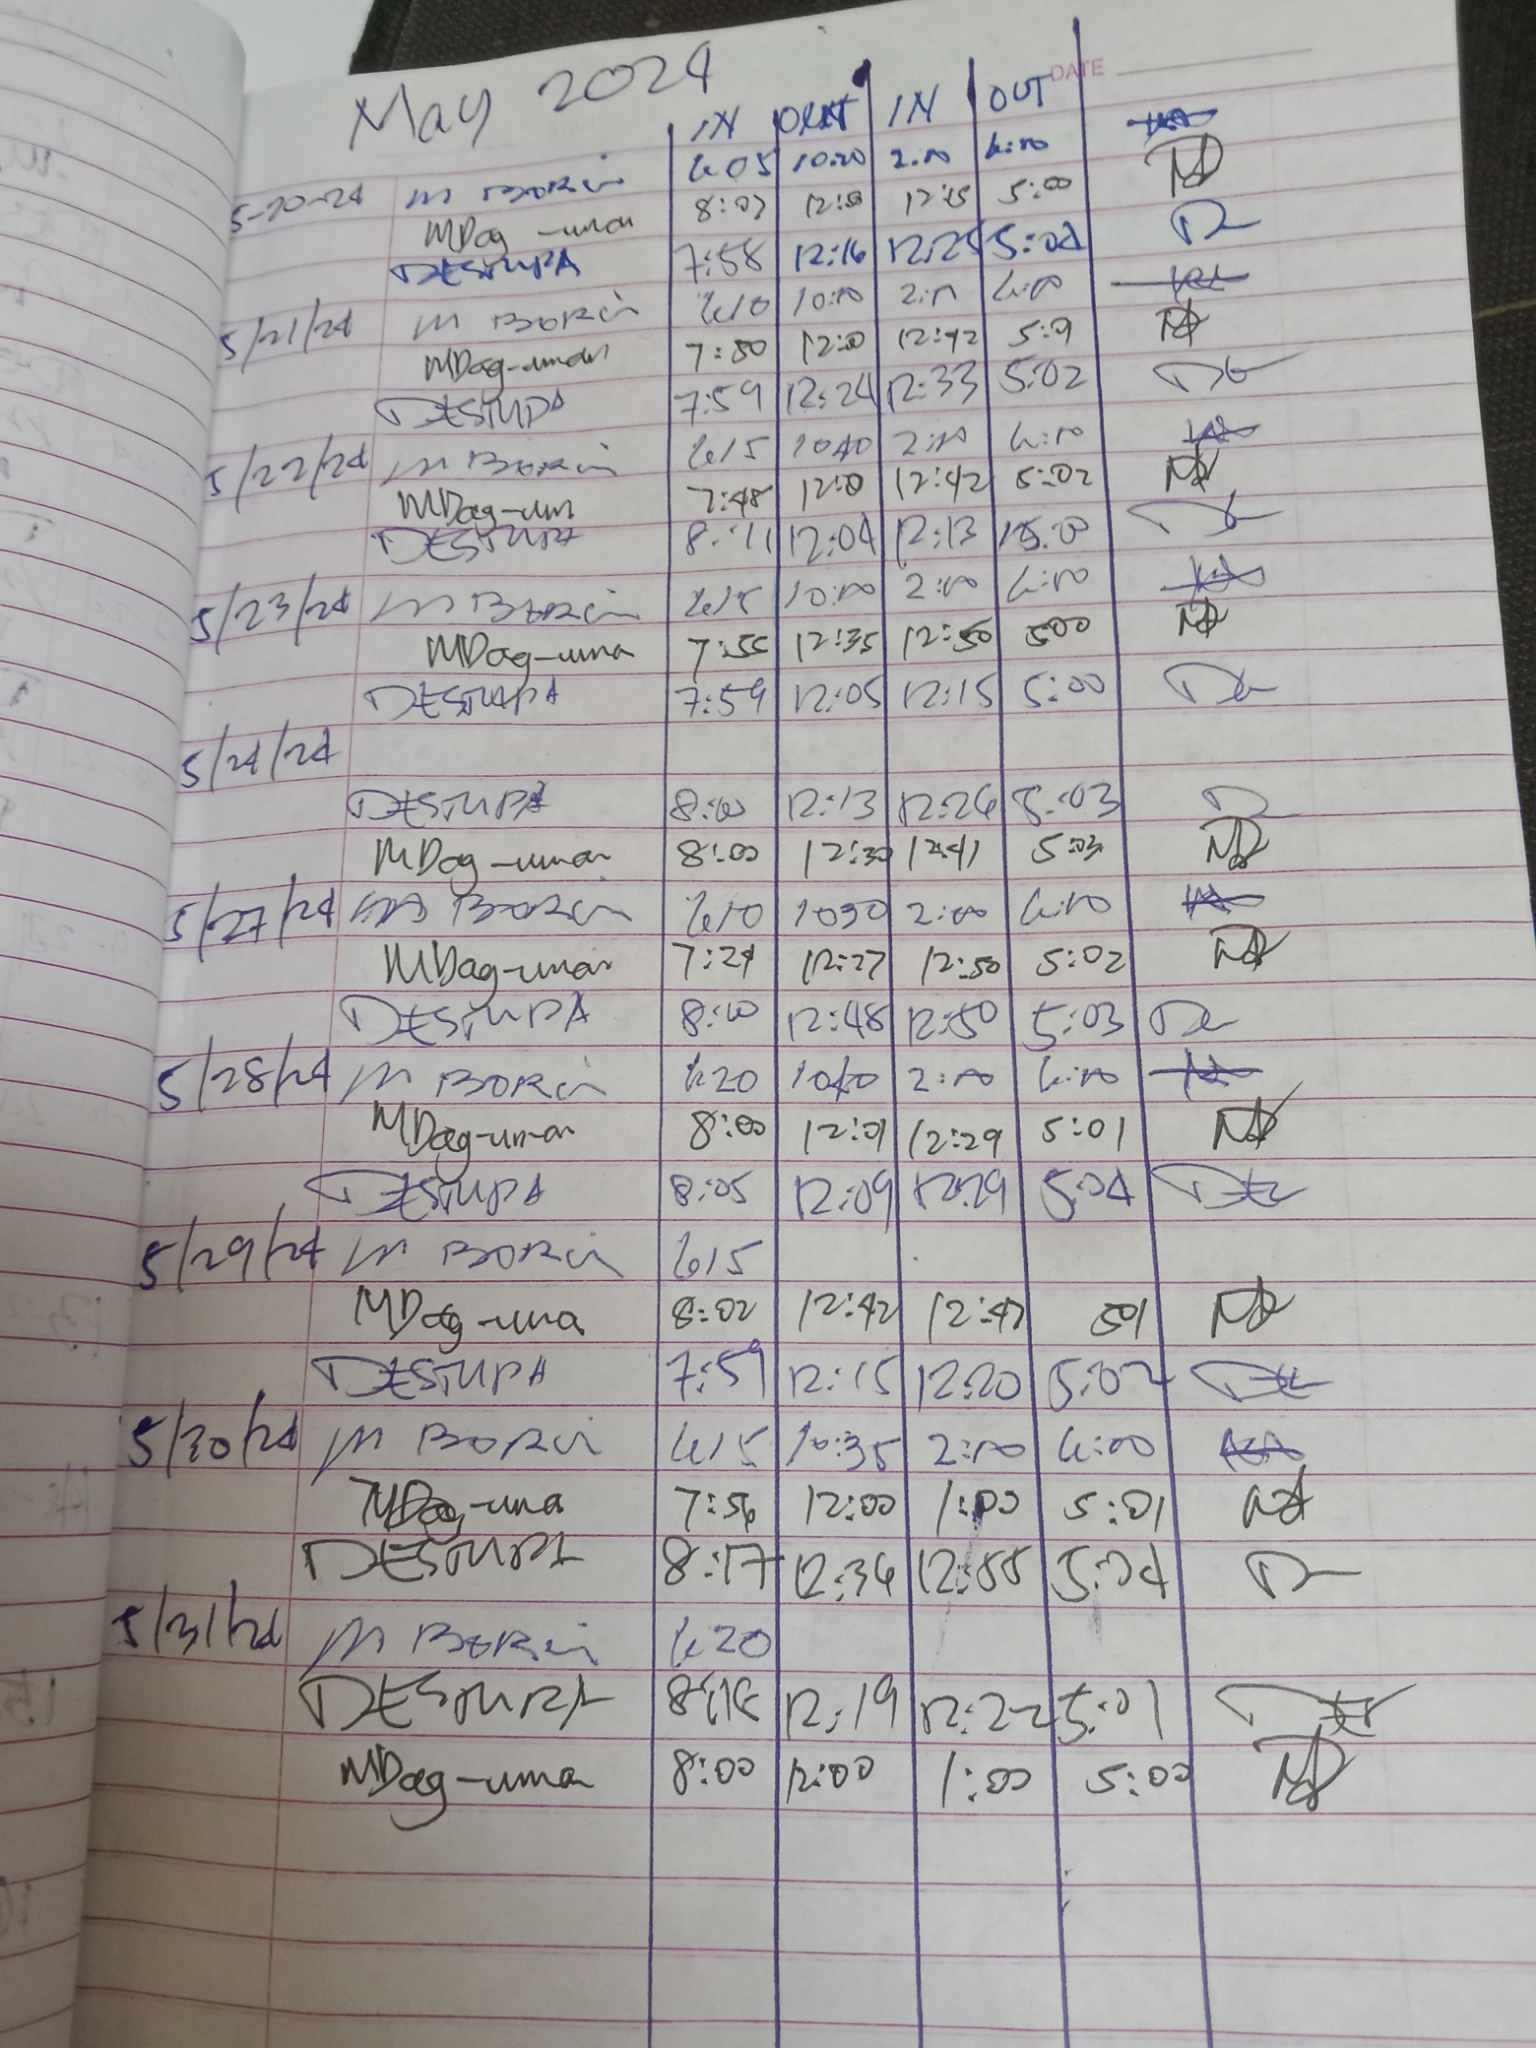 May 2024
DATE
IN OUT IN OUT
5-20-24 M Borci 6:05 10:20 2:00 6:00
MDag-uman 8:07 12:15 5:00
DESTUPA 7:58 12:16 12:25 5:04
5/21/24 M Borci 6:10 10:00 2:00 6:00
MDag-uman 7:50 12:0 12:42 5:9
DESTUPA 7:59 12:24 12:33 5:02
5/22/24 M Borci 6:15 1040 2:00 6:00
MDag-um 7:48 12:0 12:42 5:02
DESTUPA 8:11 12:04 12:13
5/23/24 M Borci 6:15 10:00 2:00 6:00
MDag-uma 7:55 12:35 12:50 500
DESTUPA 7:59 12:05 12:15 5:00
5/24/24
DESTUPA 8:00 12:13 12:26 5:03
MDag-uman 8:00 12:30 12:41 5:03
5/27/24 M Borci 6:10 1030 2:00 6:00
MDag-uman 7:24 12:27 12:50 5:02
DESTUPA 8:10 12:48 12:50 5:03
5/28/24 M Borci 6:20 1040 2:00 6:00
MDag-uman 8:00 12:01 12:29 5:01
DESTUPA 8:05 12:09 12:29 5:04
5/29/24 M Borci 6:15
MDag-uma 8:02 12:42 12:47 501
DESTUPA 7:59 12:15 12:20 5:02
5/30/24 M Borci 6:15 10:35 2:00 6:00
MDag-uma 7:56 12:00 1:00 5:01
DESTUPA 8:17 12:36 5:04
5/31/24 M Borci 6:20
DESTUPA 12:19 12:22 5:01
MDag-uma 8:00 12:00 1:00 5:00